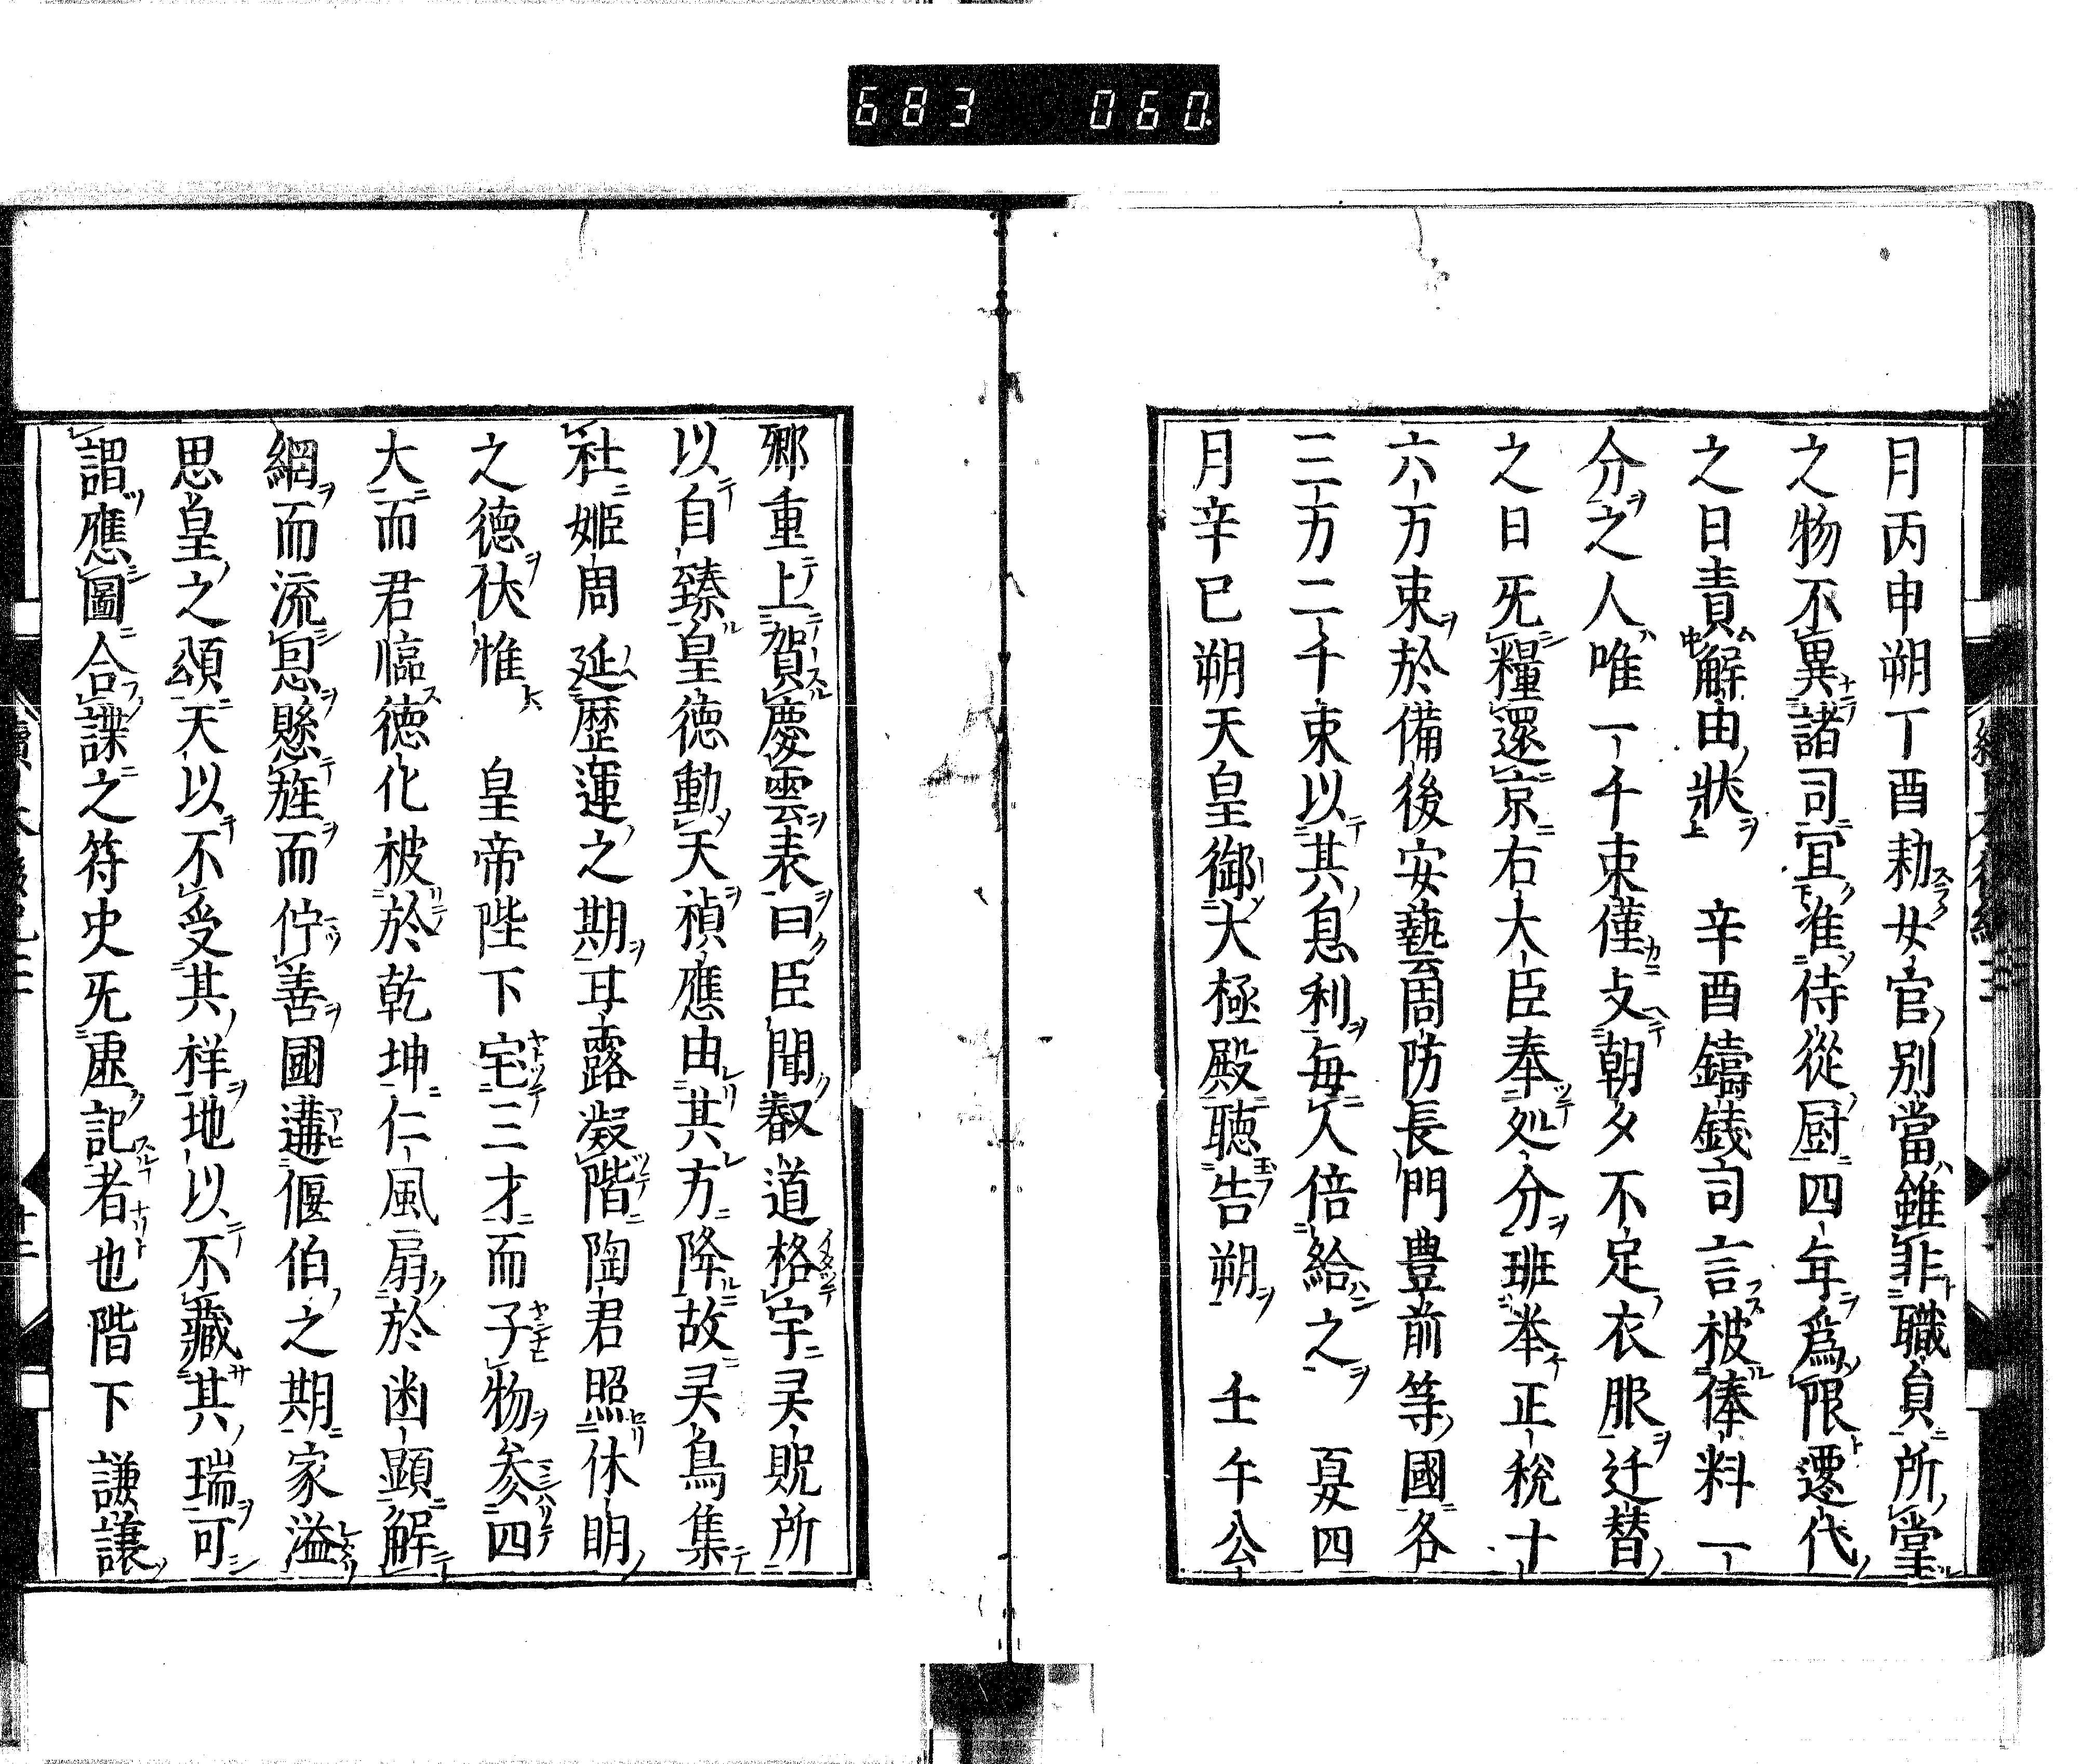 683 060
月丙申朔丁酉勅女官別當雖非職員所掌
之物不異諸司宜准侍從厨四年爲限遷代
之日責解由狀 辛酉鑄錢司言被俸料一
分之人唯一千束僅支朝夕不足衣服迁替
之日旡糧還京右大臣奉処分班挙正税十
六万束於備後安藝周防長門豊前等國各
三万二千束以其息利每人倍給之 夏四
月辛巳朔天皇御大極殿聴告朔 壬午公
卿重上賀慶雲表曰臣聞叡道格宇灵貺所
以自臻皇德動天禎應由其方降故灵鳥集
社姬周延歷運之期耳露凝階陶君照休明
之德伏惟 皇帝陛下宅三才而子物叅四
大而君臨德化被於乾坤仁風扇於幽顯解
網而流息懸旌而佇善國遘偃伯之期家溢
思皇之頌天以不受其祥地以不藏其瑞可
謂應圖合諜之符史旡虛記者也階下謙讓